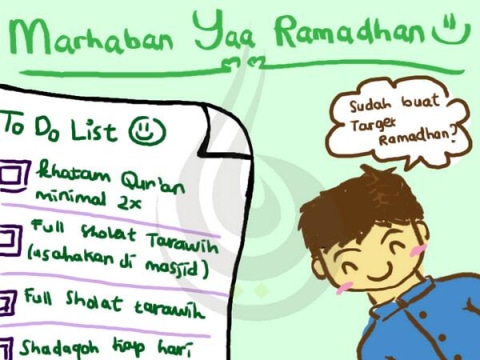 Marhaban Yaa Ramadhan
To Do List
Khatam Qur'an
minimal 2x
Full Sholat Tarawih
(usahakan di masjid)
Full Sholat tarawih
Shadaqoh tiap hari
Sudah buat
Target
Ramadhan?